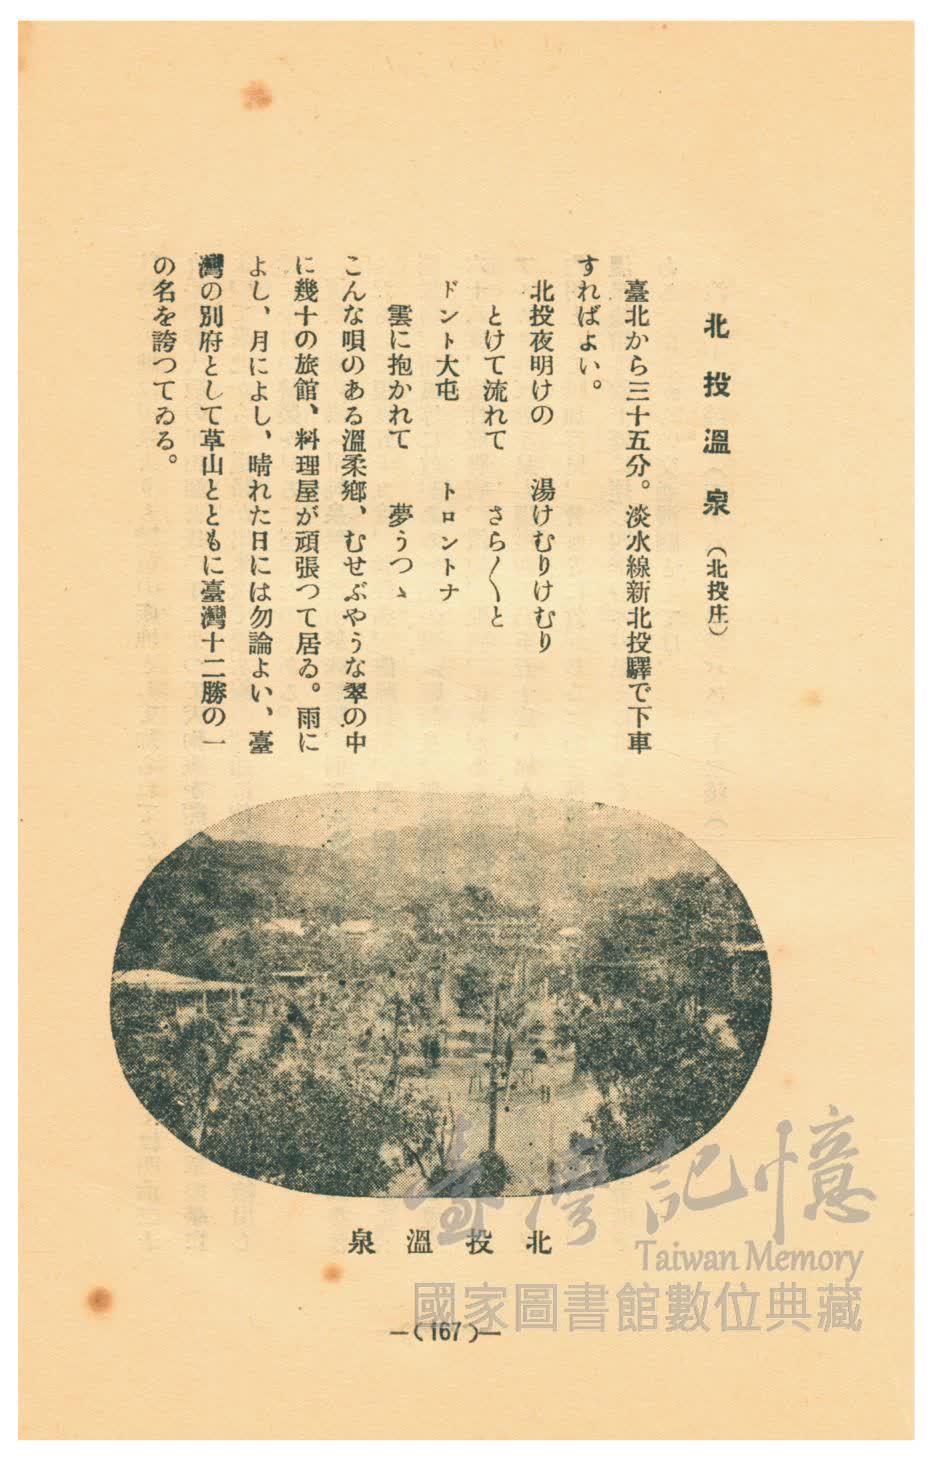 北投溫泉（北投庄）
臺北から三十五分。淡水線新北投驛で下車
すればよい。
北投夜明けの　湯けむりけむり
とけて流れて　さら〳〵と
ドント大屯　トロントナ
雲に抱かれて　夢うつゝ
こんな唄のある溫柔鄕、むせぶやうな翠の中
に幾十の旅館、料理屋が頑張つて居る。雨に
よし、月によし、晴れた日には勿論よい、臺
灣の別府として草山とともに臺灣十二勝の一
の名を誇つてゐる。
北投溫泉
—(167)—
臺灣記憶
Taiwan Memory
國家圖書館數位典藏